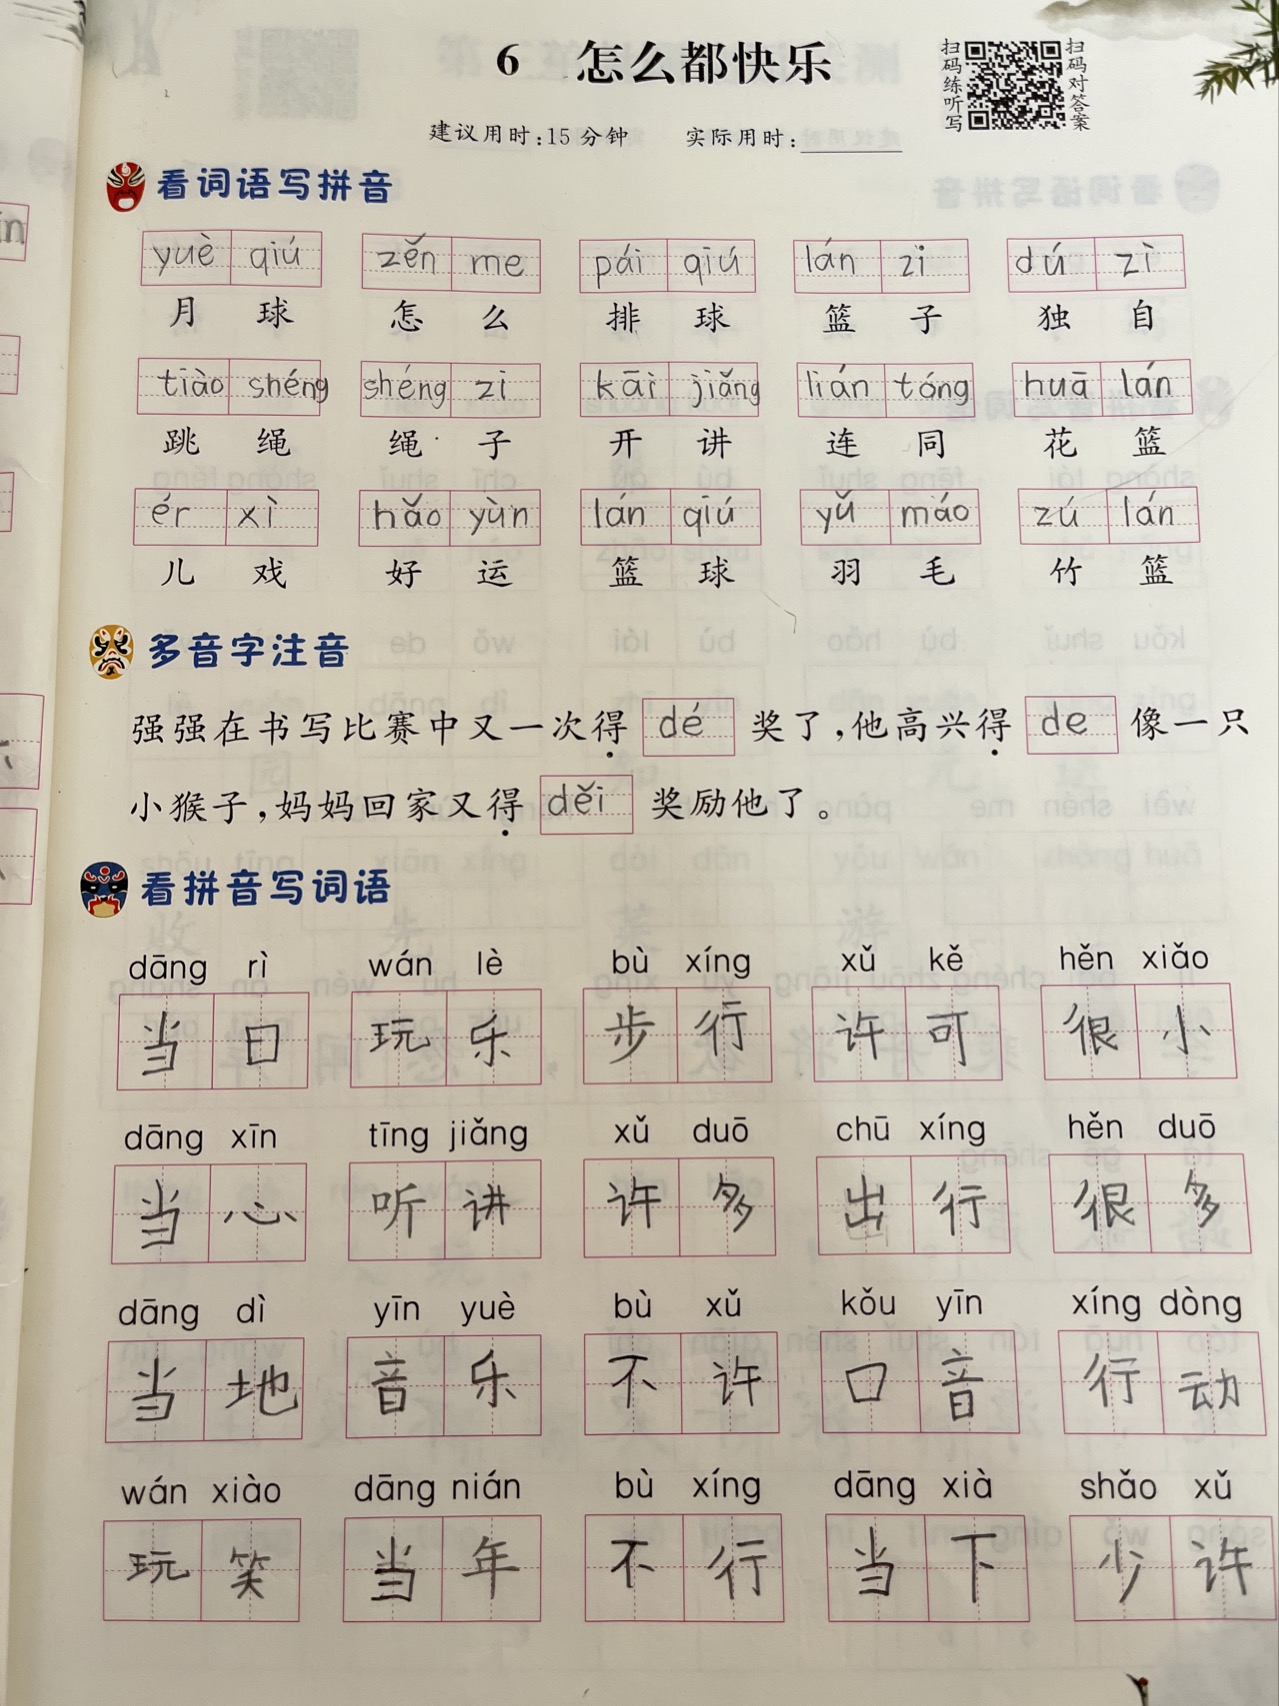 6 怎么都快乐
扫码练听写
扫码对答案
建议用时:15分钟 实际用时:
看词语写拼音
yuè qiú zěn me pái qiú lán zi dú zì
月 球 怎 么 排 球 篮 子 独 自
tiào shéng shéng zi kāi jiǎng lián tóng huā lán
跳 绳 绳 子 开 讲 连 同 花 篮
ér xì hǎo yùn lán qiú yǔ máo zú lán
儿 戏 好 运 篮 球 羽 毛 竹 篮
多音字注音
强强在书写比赛中又一次得 dé 奖了,他高兴得 de 像一只
小猴子,妈妈回家又得 děi 奖励他了。
看拼音写词语
dāng rì wán lè bù xíng xǔ kě hěn xiǎo
当 日 玩 乐 步 行 许 可 很 小
dāng xīn tīng jiǎng xǔ duō chū xíng hěn duō
当 心 听 讲 许 多 出 行 很 多
dāng dì yīn yuè bù xǔ kǒu yīn xíng dòng
当 地 音 乐 不 许 口 音 行 动
wán xiào dāng nián bù xíng dāng xià shǎo xǔ
玩 笑 当 年 不 行 当 下 少 许